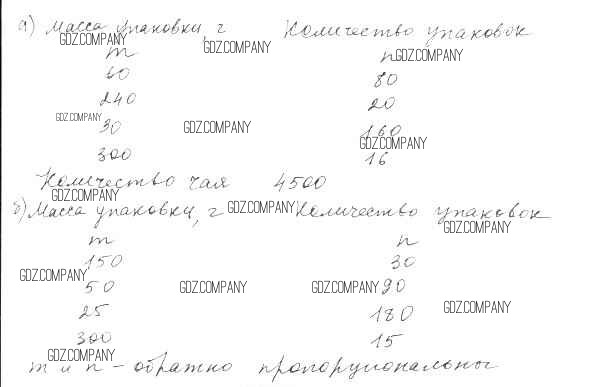 а) Масса упаковки, г Количество упаковок
GDZ.COMPANY GDZ.COMPANY
m n GDZ.COMPANY
60 80
240 20
GDZ.COMPANY
30 GDZ.COMPANY 160
GDZ.COMPANY
300 16
Количество чая 4500
GDZ.COMPANY
б) Масса упаковки, г GDZ.COMPANY Количество упаковок
GDZ.COMPANY
m n
150 30
GDZ.COMPANY
50 GDZ.COMPANY GDZ.COMPANY 90
25 180 GDZ.COMPANY
300 15
GDZ.COMPANY
m и n - обратно пропорциональны